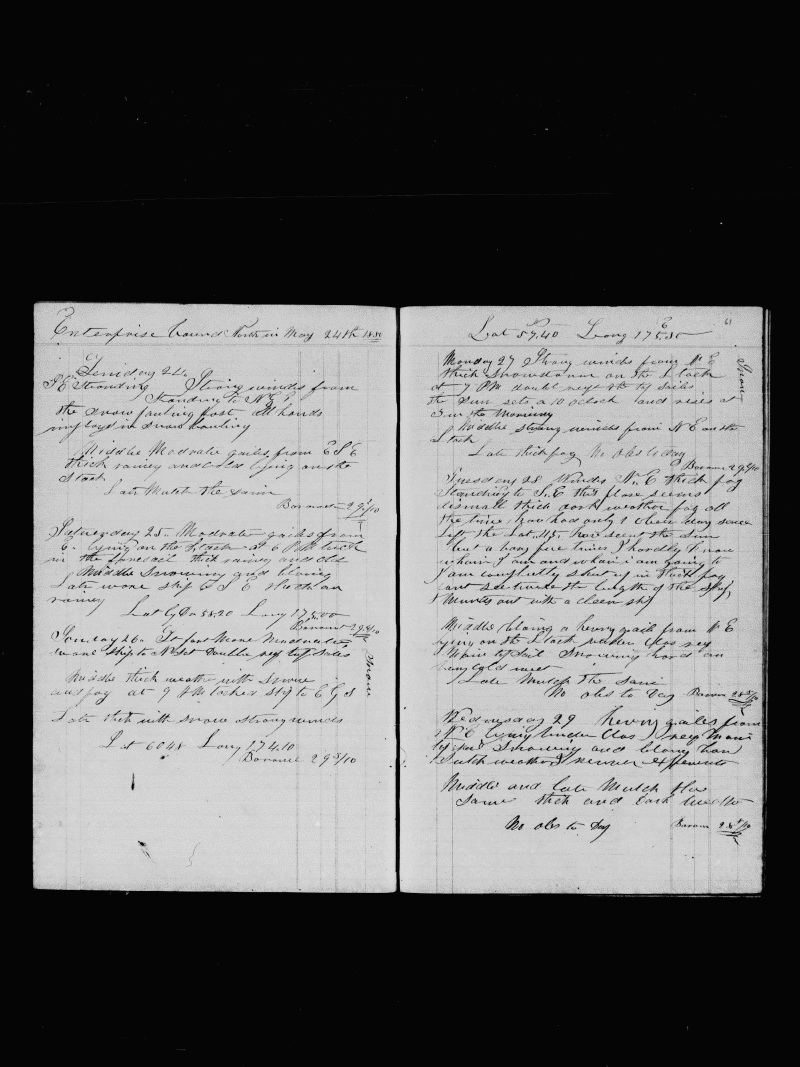 Enterprise bound North in May 24th
Friday 24.
S E Standing Strong winds from
Standing to N E
the snow fawling fast all hands
imployd in snow bawling
Middle Modrate gails from E S E
thick rainey and cold lying on the
tack
Late Match the saim
Baromet 29
Saturday 25. Modrate gails from
E. lying on the tack at 6 P M took
in the foresail thick rainey and cold
Middle Snowing and blowing
Late wore ship to S E thick an
rainey
Lat by Dr 58.20 Long 175.00
Baromet 29
Sunday 26. first part More Moderate
wore ship to N Set Double reef topsails
Middle thick weather with Snow
and fog at 9 P M tacked ship to E by S
Late thick with snow strong winds
Lat 60.48 Long 174.10
Baromet 29 5/10
Snow
61
Lat 57.40 Long 175.30
E
Monday 27 Strong winds from N E
thick snowstorm on the S tack
at 7 P M doubl reeft the top sails
the Sun sets a 10 oclock and rises at
3 in the Morning
Middle strong winds from N E on the
S tack
Late thick fog No obs to day
Barom 29 6/10
Tuesday 28 Winds N. E thick fog
Standing to S. E this place seems
dismall thick dark weather fog all
the time have had only 1 clear day since
left the Lat 45. have seen the Sun
but a very few times I hardly know
whair I am and whair i am going to
I am completly shut up in thick fog
cant see twice the length of the ship,
Middle blowing a hevey gail from N E
lying on the S tack under Clos reef
Main topsail Snowing hard an
very Cold wet
Late Match the Saim
No obs to Day Barom
Wednesday 29 hevey gailes from
N E lying under Clos reef Main
topsail Snowing and blowing hard
Such weather I never
Middle and late Match the
Same thick and dark weather
No obs to Day Barom
Snow